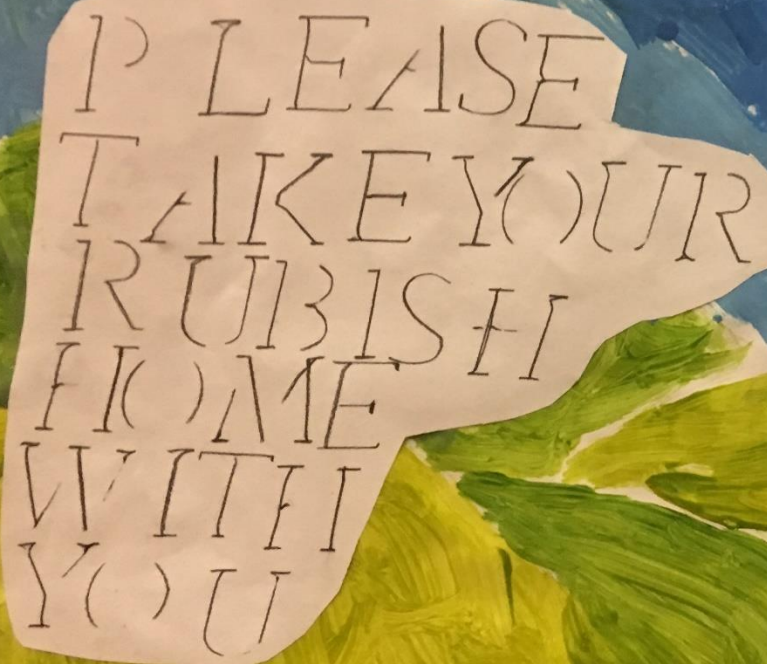 PLEASE
TAKE YOUR
RUBISH
HOME
WITH
YOU